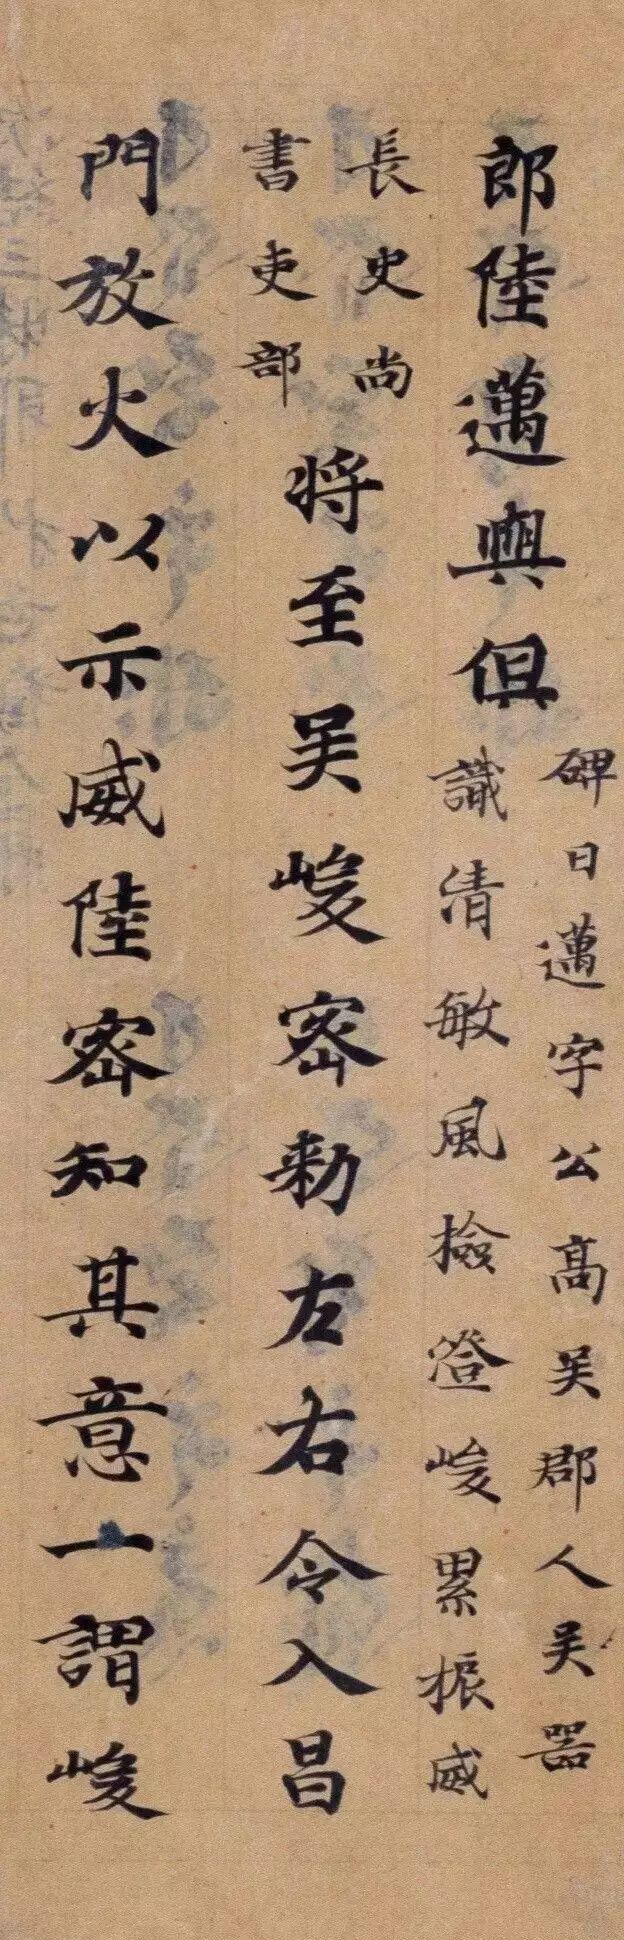 郎陸邁與俱
碑曰邁字公高吴郡人吴器
識清敏風檢澄峻累振威
長史尚
書吏部
将至吴峻密勑左右令入昌
門放火以示威陸密知其意一謂峻